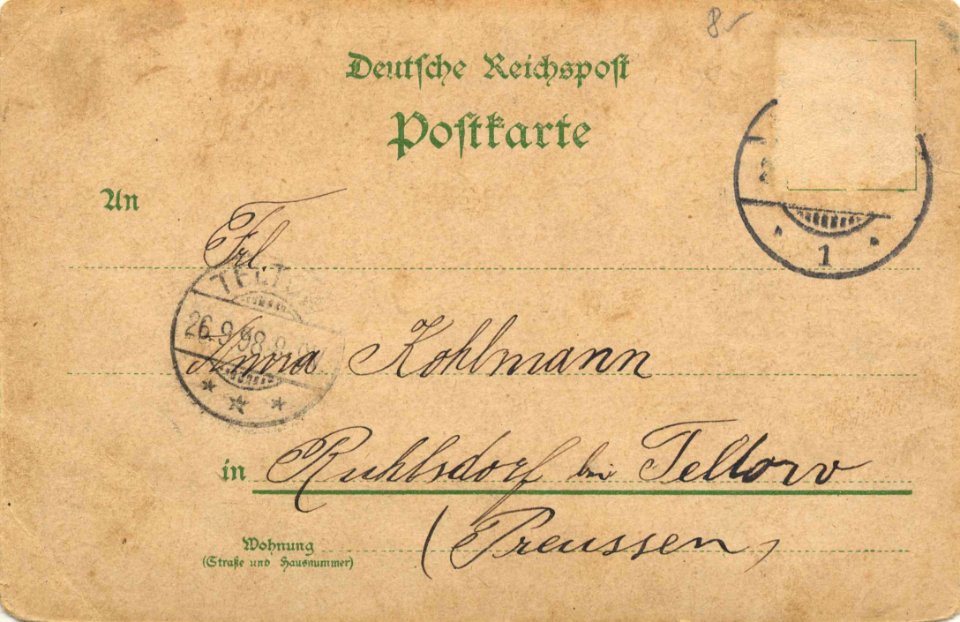 8-
Deutsche Reichspost
Postkarte
An
Frl.
TELTOW
26.9.98.8
1
Anna Kohlmann
in Ruhlsdorf bei Teltow
(Preussen)
Wohnung
(Straße und Hausnummer)